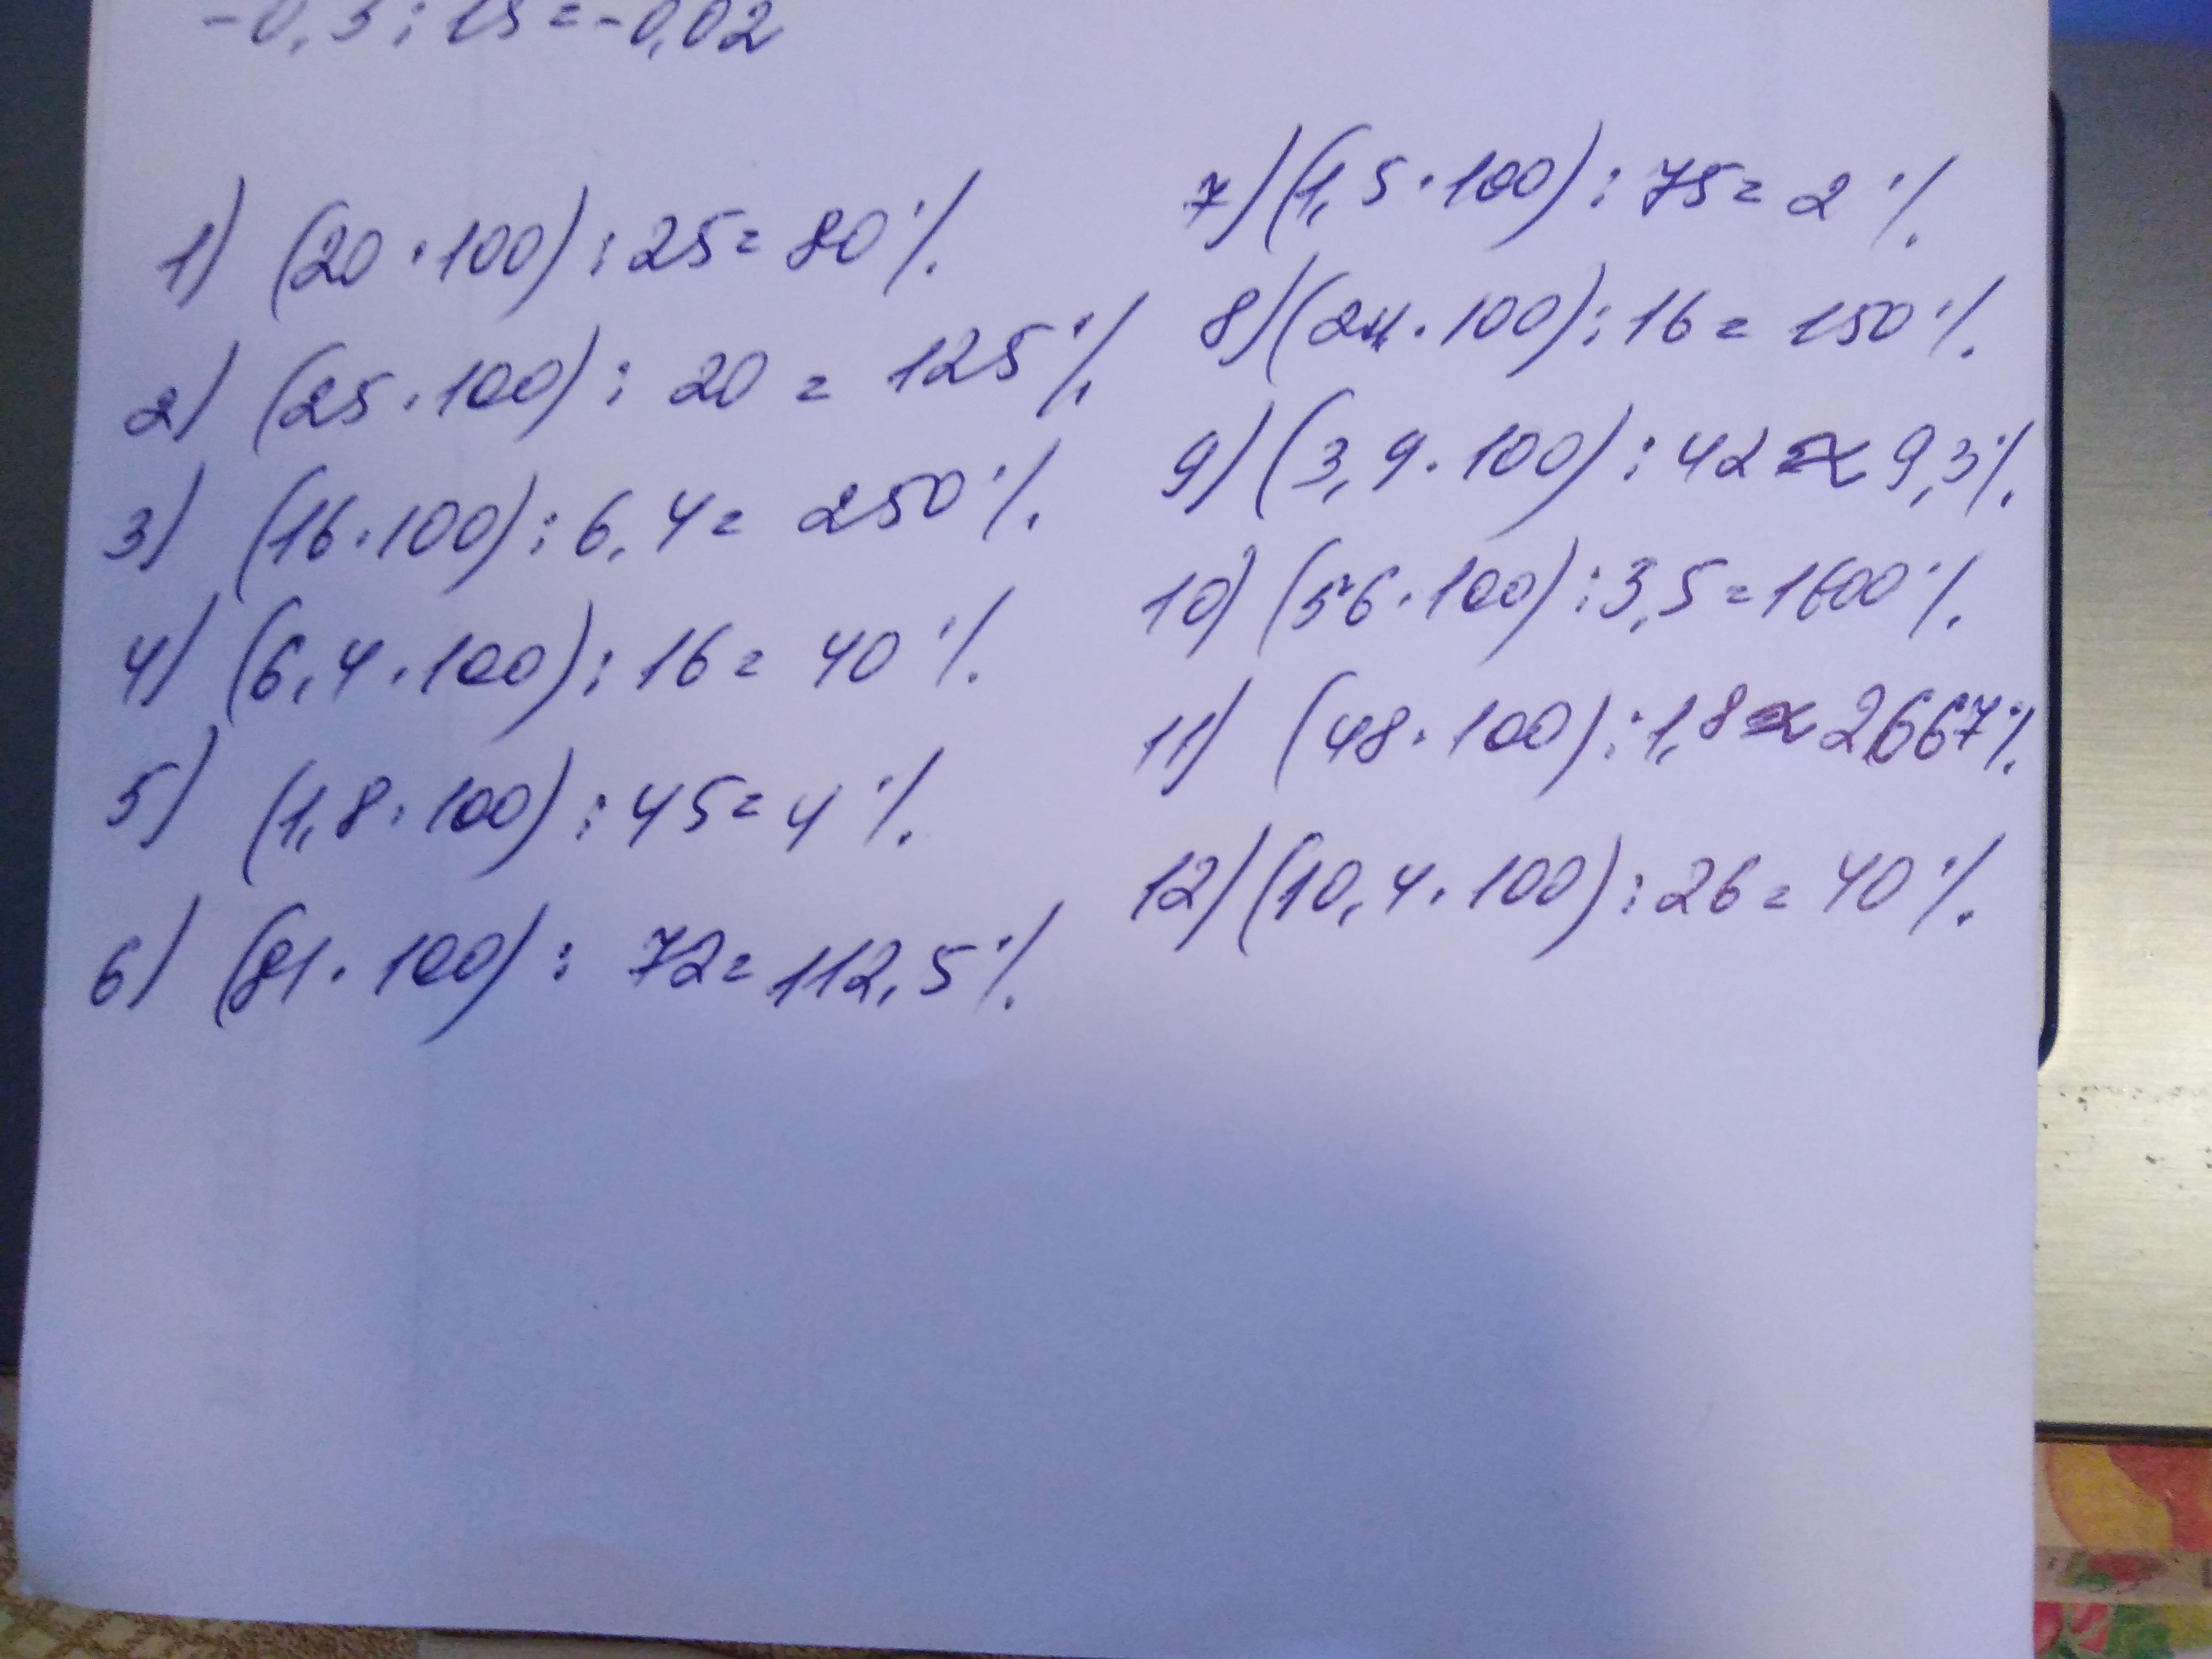 -0,3 : 15 = -0,02
1) (20 · 100) : 25 = 80 %
2) (25 · 100) : 20 = 125 %
3) (16 · 100) : 6,4 = 250 %
4) (6,4 · 100) : 16 = 40 %
5) (1,8 · 100) : 45 = 4 %
6) (81 · 100) : 72 = 112,5 %
7) (1,5 · 100) : 75 = 2 %
8) (24 · 100) : 16 = 150 %
9) (3,9 · 100) : 42 ≈ 9,3 %
10) (56 · 100) : 3,5 = 1600 %
11) (48 · 100) : 1,8 ≈ 2667 %
12) (10,4 · 100) : 26 = 40 %